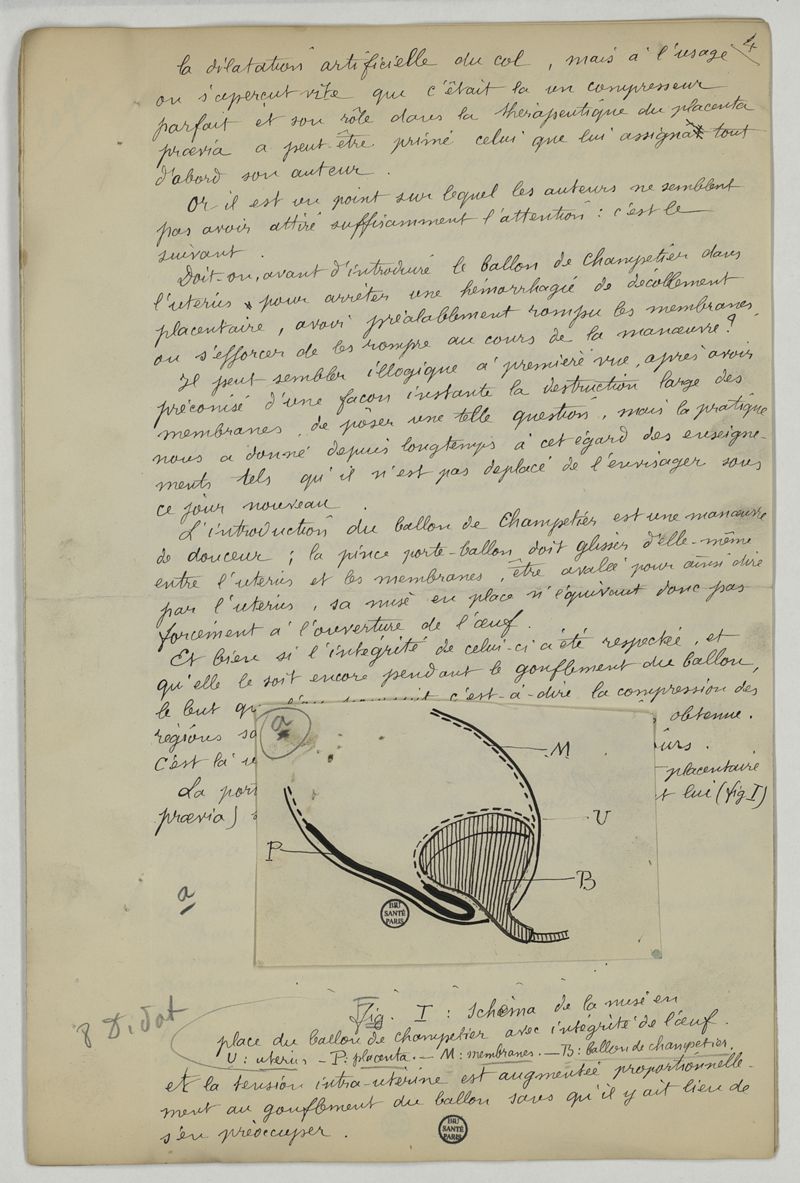 4
la dilatation artificielle du col, mais à l'usage
on s'aperçut vite que c'était là un compresseur
parfait et son rôle dans la thérapeutique du placenta
praevia a peut-être primé celui que lui assigna tout
d'abord son auteur.
Or il est un point sur lequel les auteurs ne semblent
pas avoir attiré suffisamment l'attention : c'est le
suivant.
Doit-on, avant d'introduire le ballon de Champetier dans
l'utérus pour arrêter une hémorrhagie de décollement
placentaire, avoir préalablement rompu les membranes
ou s'efforcer de les rompre au cours de la manœuvre ?
Il peut sembler illogique à première vue, après avoir
préconisé d'une façon instante la destruction large des
membranes, de poser une telle question, mais la pratique
nous a donné depuis longtemps à cet égard des enseigne-
ments tels qu'il n'est pas déplacé de l'envisager sous
ce jour nouveau.
L'introduction du ballon de Champetier est une manœuvre
de douceur ; la pince porte-ballon doit glisser d'elle-même
entre l'utérus et les membranes, être avalée pour ainsi dire
par l'utérus, sa mise en place n'équivaut donc pas
forcément à l'ouverture de l'œuf.
Et bien si l'intégrité de celui-ci a été respectée, et
qu'elle le soit encore pendant le gonflement du ballon,
le but c'est-à-dire la compression des
régions obtenue.
C'est là
La placentaire
praevia) lui (fig I)
a
M
U
P
B
BIU
SANTÉ
PARIS
a
8 Didot
Fig. I : Schéma de la mise en
place du ballon de Champetier avec intégrité de l'œuf.
U : utérus - P : placenta. - M : membranes. - B : ballon de champetier.
et la tension intra-utérine est augmentée proportionnelle-
ment au gonflement du ballon sans qu'il y ait lieu de
s'en préoccuper.
BIU
SANTÉ
PARIS